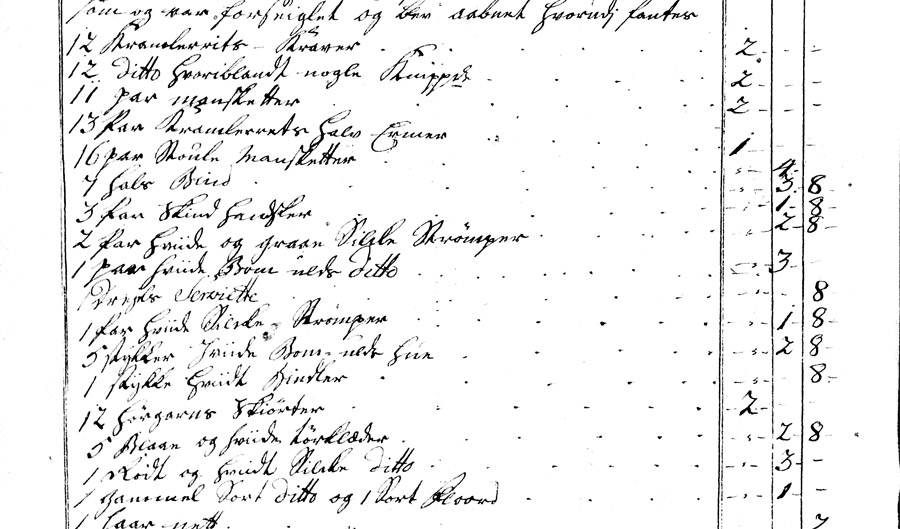 som og var forseiglet og bev aabnet hvorudj fantes
12 Kramlerrits - Kraver 2 - -
12 ditto hvoriblandt nogle Knippde 2 - -
11 par mansketter 2 - -
13 Par Kramlerrets halv Ermer 1
16 par Stoule Mansketter - 4
7 hals Bind - 3 8
3 Par Skind handsker - 1 8
2 Par hviide og graae Silcke Strömper - 2 8
1 par hviide Bom ulds ditto - 3 -
1 Servictte - - 8
1 Par hviide Silcke - Strömper - 1 8
5 stykker hviide Bom-ulds hue - 2 8
1 stykke hviidt - - 8
12 hörgarns Skiörter 2 - -
5 Blaae og hviide törklæder - 2 8
1 Rödt og hviidt Silcke ditto - 3 -
1 gammel Sort ditto og 1 Sort Floord - 1 -
1 haar nett